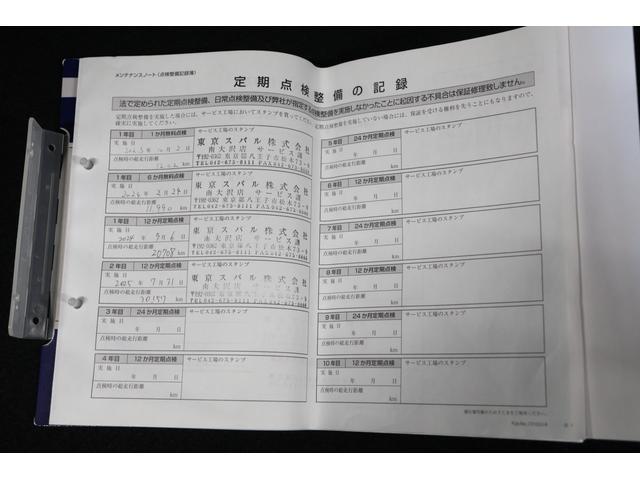 メンテナンスノート（点検整備記録簿）
定期点検整備の記録
法で定められた定期点検整備、日常点検整備及び弊社が指定する点検整備を実施しなかったことに起因する不具合は保証修理致しません。
定期点検整備を実施した場合には、サービス工場においてスタンプを貰ってください。
定期点検整備を実施していない場合には、保証を受ける権利を失うことにもなりますので、
確実に実施してください。
1年目 1か月無料点検 サービス工場のスタンプ
実施日
2023年10月2日
点検時の総走行距離
km
東京スバル株式会社
南大沢店 サービス課
〒192-0362 東京都八王子市松木73-8
TEL042-675-8111 FAX042-675-8668
1年目 6か月無料点検 サービス工場のスタンプ
実施日
2024年2月24日
点検時の総走行距離
11990 km
東京スバル株式会社
南大沢店 サービス課
〒192-0362 東京都八王子市松木73-8
TEL042-675-8111 FAX042-675-8668
1年目 12か月定期点検 サービス工場のスタンプ
実施日
2024年9月6日
点検時の総走行距離
20708 km
東京スバル株式会社
南大沢店 サービス課
〒192-0362 東京都八王子市松木73-8
TEL042-675-8111 FAX042-675-8668
2年目 12か月定期点検 サービス工場のスタンプ
実施日
2025年7月31日
点検時の総走行距離
30157 km
東京スバル株式会社
南大沢店 サービス課
〒192-0362 東京都八王子市松木73-8
TEL042-675-8111 FAX042-675-8668
3年目 24か月定期点検 サービス工場のスタンプ
実施日
年 月 日
点検時の総走行距離
km
4年目 12か月定期点検 サービス工場のスタンプ
実施日
年 月 日
点検時の総走行距離
km
5年目 24か月定期点検 サービス工場のスタンプ
実施日
年 月 日
点検時の総走行距離
km
6年目 12か月定期点検 サービス工場のスタンプ
実施日
年 月 日
点検時の総走行距離
km
7年目 24か月定期点検 サービス工場のスタンプ
実施日
年 月 日
点検時の総走行距離
km
8年目 12か月定期点検 サービス工場のスタンプ
実施日
年 月 日
点検時の総走行距離
km
9年目 24か月定期点検 サービス工場のスタンプ
実施日
年 月 日
点検時の総走行距離
km
10年目 12か月定期点検 サービス工場のスタンプ
実施日
年 月 日
点検時の総走行距離
km